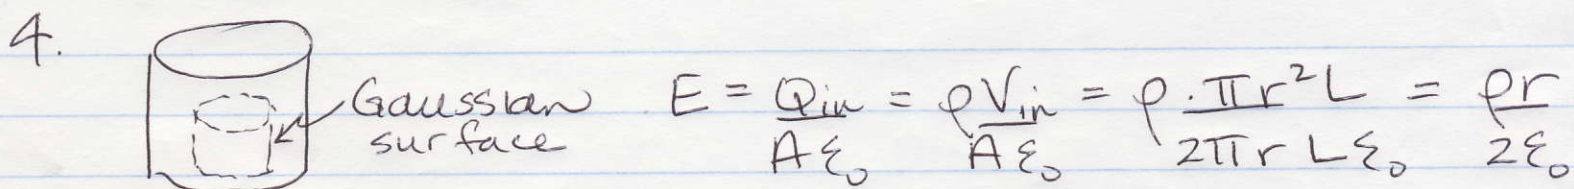 4.
Gaussian surface
E = Qin/Aε₀ = ρVin/Aε₀ = ρ·πr²L/2πrLε₀ = ρr/2ε₀